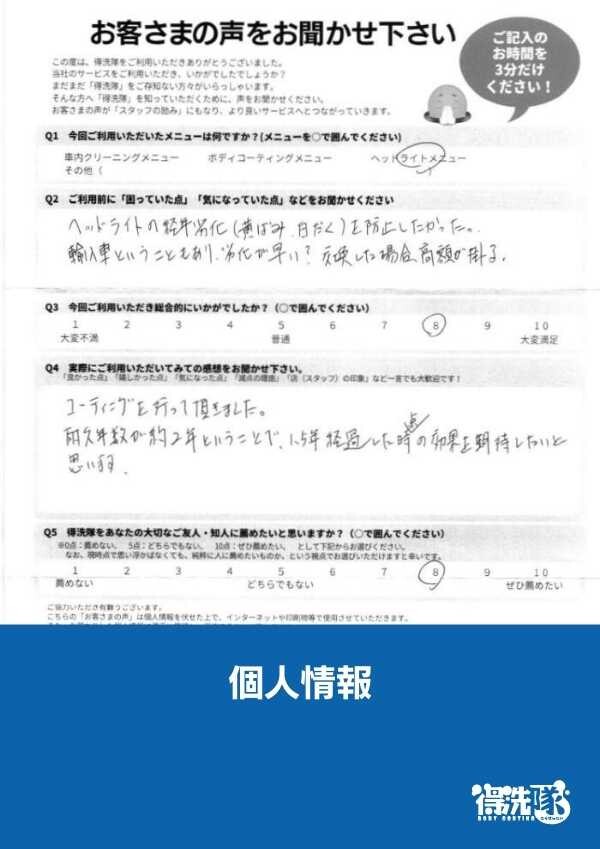 お客さまの声をお聞かせ下さい
ご記入の
お時間を
3分だけ
ください！
この度は、得洗隊をご利用いただきありがとうございました。
当社のサービスをご利用いただき、いかがでしたでしょうか？
まだまだ「得洗隊」をご存知ない方々がいらっしゃいます。
そんな方へ「得洗隊」を知っていただくために、声をお聞かせください。
お客さまの声が「スタッフの励み」にもなり、より良いサービスへとつながっていきます。
Q1 今回ご利用いただいたメニューは何ですか？(メニューを○で囲んでください)
車内クリーニングメニュー ボディコーティングメニュー ヘッドライトメニュー
その他（ ）
Q2 ご利用前に「困っていた点」「気になっていた点」などをお聞かせください
ヘッドライトの経年劣化(黄ばみ、白だく)を防止したかった。
輸入車ということもあり、劣化が早い？交換した場合、高額が掛る。
Q3 今回ご利用いただき総合的にいかがでしたか？（○で囲んでください）
1 2 3 4 5 6 7 8 9 10
大変不満 普通 大変満足
Q4 実際にご利用いただいてみての感想をお聞かせ下さい。
「良かった点」「嬉しかった点」「気になった点」「減点の理由」「店（スタッフ）の印象」など一言でも大歓迎です！
コーティングを行って頂きました。
耐久年数が約2年ということで、1.5年経過した時点の効果を期待したいと
思います。
Q5 得洗隊をあなたの大切なご友人・知人に薦めたいと思いますか？（○で囲んでください）
※0点：薦めない、 5点：どちらでもない、 10点：ぜひ薦めたい、 として下記からお選びください。
なお、現時点で思い浮かばなくても、純粋に人に薦めたいものか、という視点でお選びいただけますと幸いです。
1 2 3 4 5 6 7 8 9 10
薦めない どちらでもない ぜひ薦めたい
ご協力いただき有難うございます。
こちらの「お客さまの声」は個人情報を伏せた上で、インターネットや印刷物等で使用させていただきます。
個人情報
得洗隊
BODY COATING